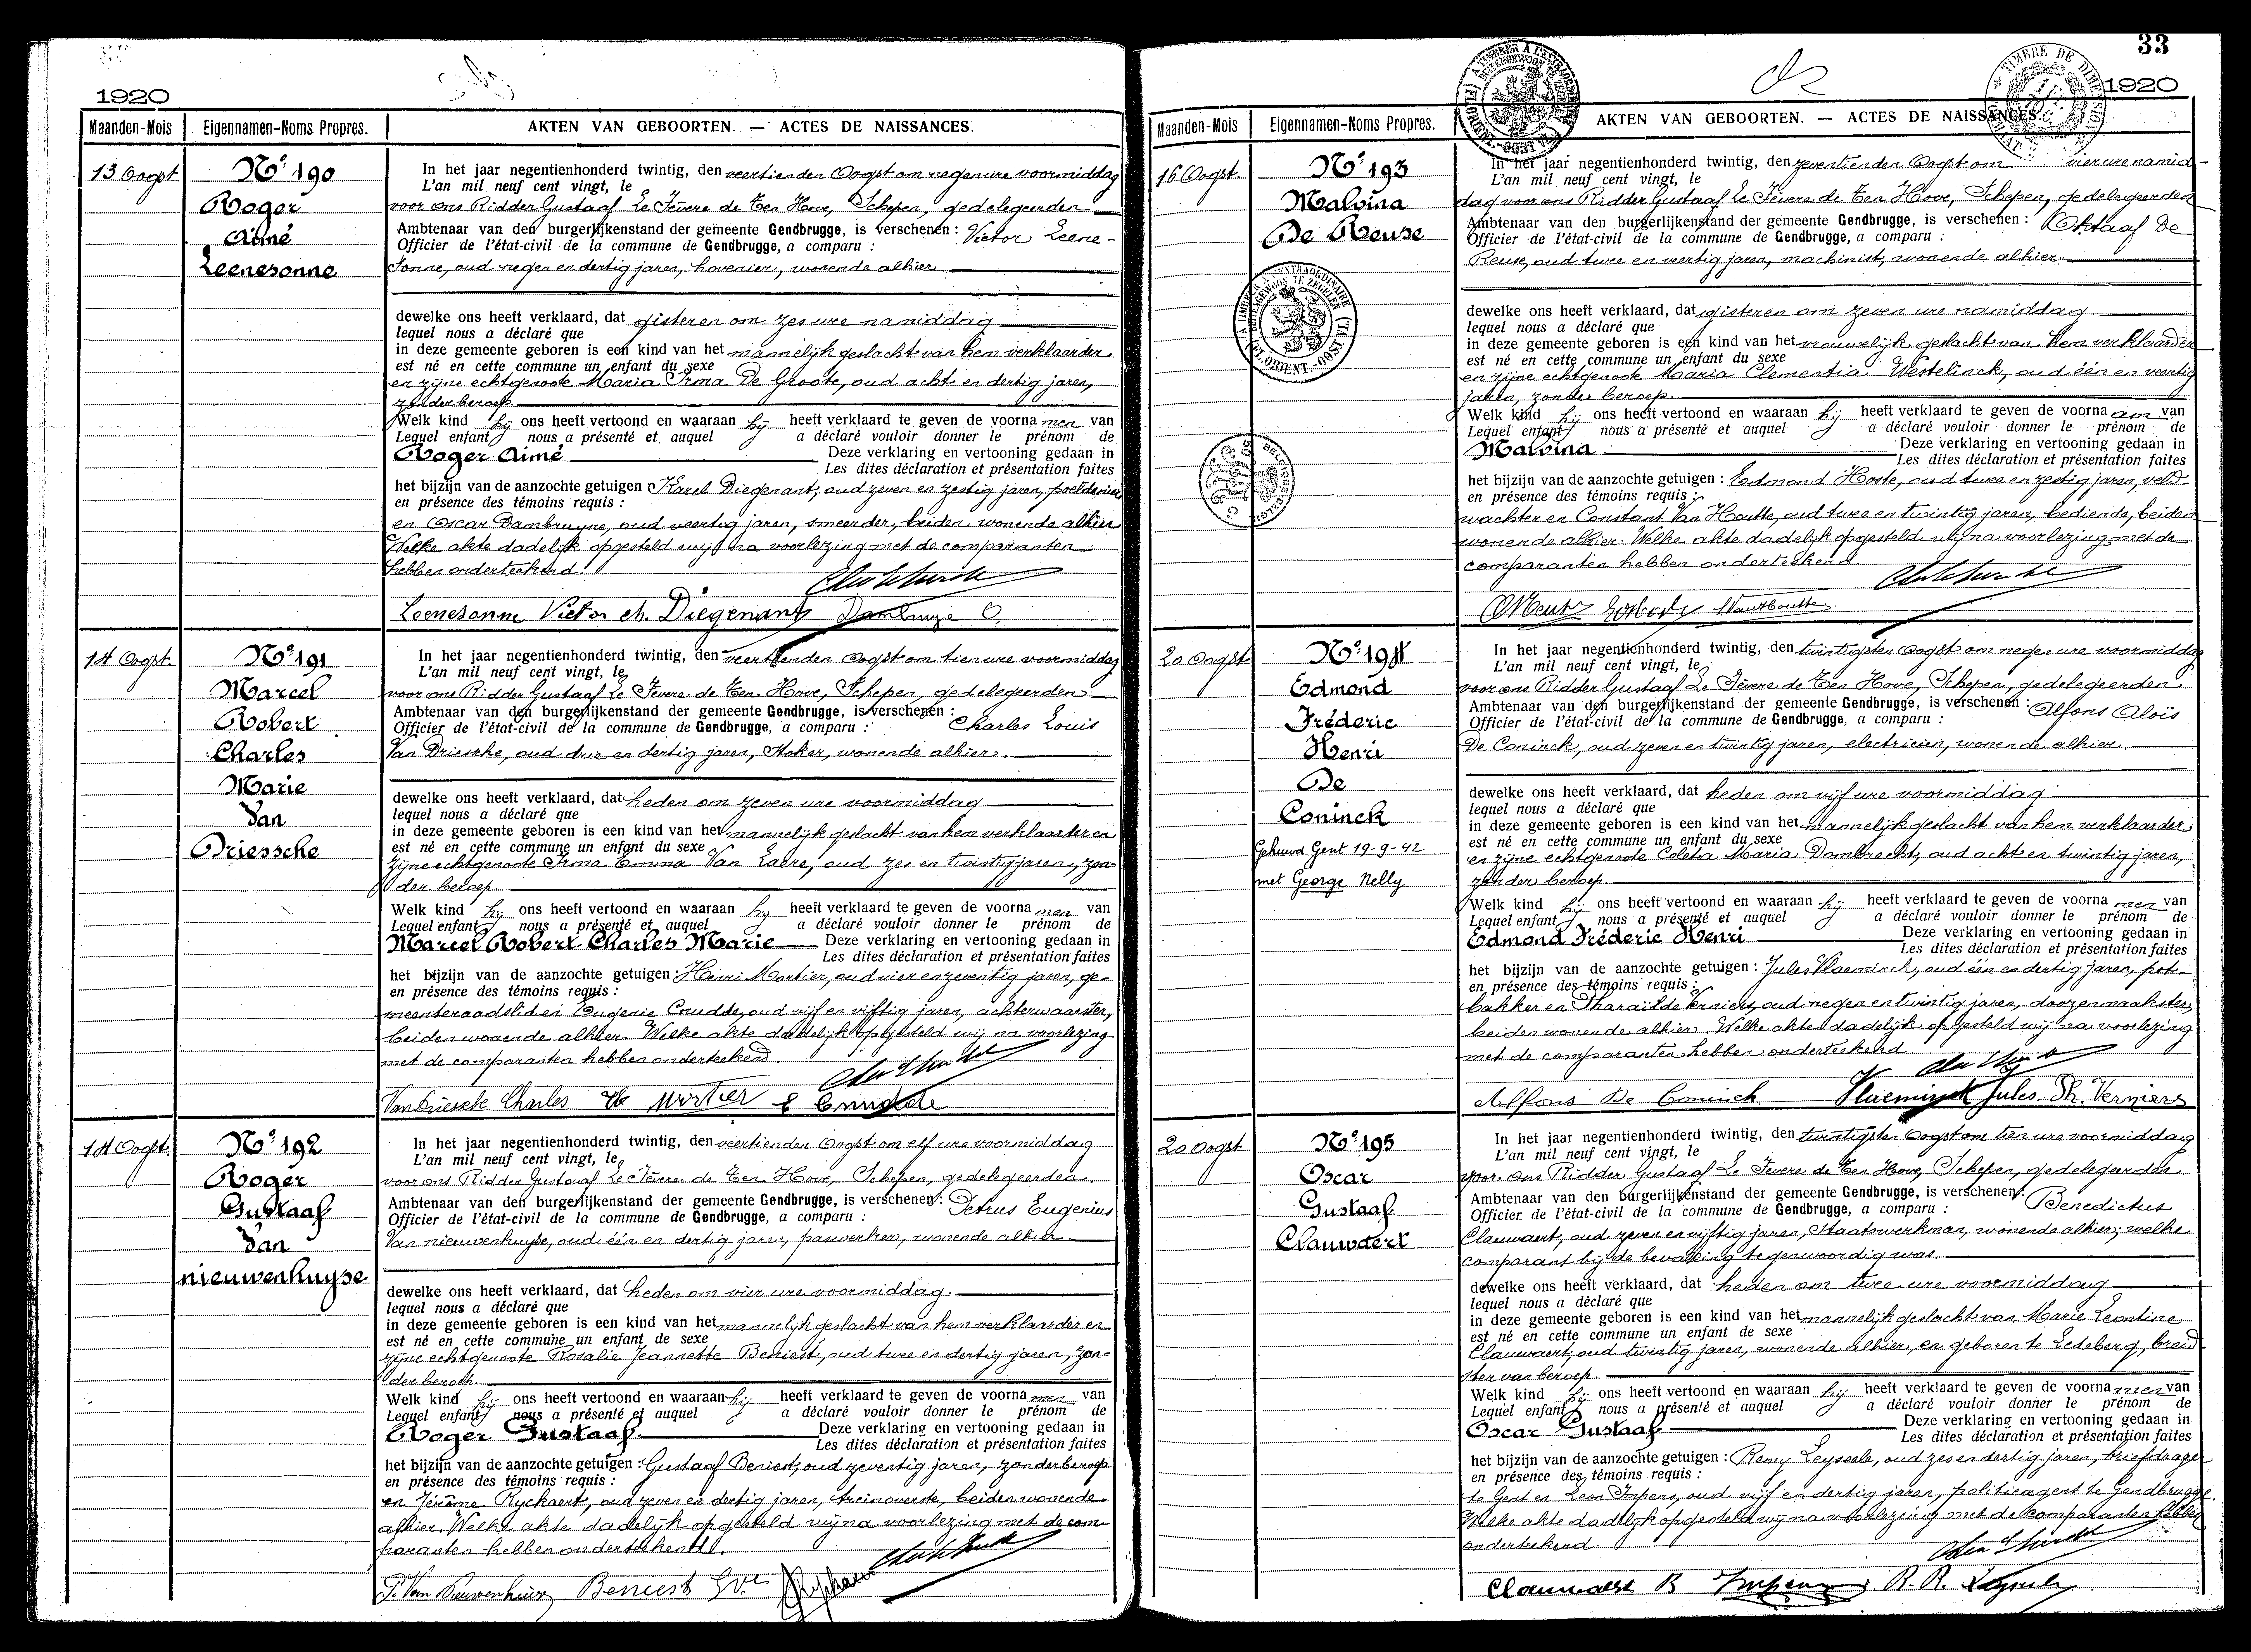 1920
Maanden-Mois
Eigennamen-Noms Propres.
AKTEN VAN GEBOORTEN. — ACTES DE NAISSANCES.
13 Oogst
No 190
Roger
Aimé
Leenesonne
In het jaar negentienhonderd twintig, den veertienden Oogst om negen ure voormiddag
L'an mil neuf cent vingt, le
voor ons Ridder Gustaaf Le Fèvere de Ten Hove, Schepen, gedelegeerden
Ambtenaar van den burgerlijkenstand der gemeente Gendbrugge, is verschenen : Victor Leene-
Officier de l'état-civil de la commune de Gendbrugge, a comparu :
sonne, oud negen en dertig jaren, hovenier, wonende alhier
dewelke ons heeft verklaard, dat gisteren om zes ure namiddag
lequel nous a déclaré que
in deze gemeente geboren is een kind van het mannelijk geslacht van hem verklaarder
est né en cette commune un enfant du sexe
en zijne echtgenoote Maria Irma De Groote, oud acht en dertig jaren,
zonder beroep
Welk kind hij ons heeft vertoond en waaraan hij heeft verklaard te geven de voorna men van
Lequel enfant nous a présenté et auquel a déclaré vouloir donner le prénom de
Roger Aimé Deze verklaring en vertooning gedaan in
Les dites déclaration et présentation faites
het bijzijn van de aanzochte getuigen : Karel Diegenant, oud zeven en zestig jaren, poeldenier
en présence des témoins requis :
en Oscar Dambruyne, oud veertig jaren, smeerder, beiden wonende alhier
Welke akte dadelijk opgesteld wij na voorlezing met de comparanten
hebben onderteekend.
Leenesonne Victor ch. Diegenant Dambruyne O
14 Oogst.
No 191
Marcel
Robert
Charles
Marie
Van
Driessche
In het jaar negentienhonderd twintig, den veertienden Oogst om tien ure voormiddag
L'an mil neuf cent vingt, le
voor ons Ridder Gustaaf Le Fèvere de Ten Hove, Schepen, gedelegeerden
Ambtenaar van den burgerlijkenstand der gemeente Gendbrugge, is verschenen :
Officier de l'état-civil de la commune de Gendbrugge, a comparu : Charles Louis
Van Driessche, oud drie en dertig jaren, Stoker, wonende alhier.
dewelke ons heeft verklaard, dat heden om zeven ure voormiddag
lequel nous a déclaré que
in deze gemeente geboren is een kind van het mannelijk geslacht van hem verklaarder en
est né en cette commune un enfant du sexe
zijne echtgenoote Irma Emma Van Laere, oud zes en twintig jaren, zon-
der beroep.
Welk kind hij ons heeft vertoond en waaraan hij heeft verklaard te geven de voorna men van
Lequel enfant nous a présenté et auquel a déclaré vouloir donner le prénom de
Marcel Robert Charles Marie Deze verklaring en vertooning gedaan in
Les dites déclaration et présentation faites
het bijzijn van de aanzochte getuigen : Henri Mortier, oud vier en zeventig jaren, ge-
en présence des témoins requis :
meenteraadslid en Eugenie Cnudde, oud vijf en vijftig jaren, achterwaarster,
beiden wonende alhier. Welke akte dadelijk opgesteld wij na voorlezing
met de comparanten hebben onderteekend.
Van Driessche Charles Mortier E Cnudde
14 Oogst.
No 192
Roger
Gustaaf
Van
nieuwenhuyse
In het jaar negentienhonderd twintig, den veertienden Oogst om elf ure voormiddag
L'an mil neuf cent vingt, le
voor ons Ridder Gustaaf Le Fèvere de Ten Hove, Schepen, gedelegeerden
Ambtenaar van den burgerlijkenstand der gemeente Gendbrugge, is verschenen : Petrus Eugenius
Officier de l'état-civil de la commune de Gendbrugge, a comparu :
Van nieuwenhuyse, oud één en dertig jaren, paswerker, wonende alhier
dewelke ons heeft verklaard, dat heden om vier ure voormiddag.
lequel nous a déclaré que
in deze gemeente geboren is een kind van het mannelijk geslacht van hem verklaarder en
est né en cette commune un enfant de sexe
zijne echtgenoote Rosalie Jeannette Beniest, oud twee en dertig jaren, zon-
der beroep.
Welk kind hij ons heeft vertoond en waaraan hij heeft verklaard te geven de voorna men van
Lequel enfant nous a présenté et auquel a déclaré vouloir donner le prénom de
Roger Gustaaf Deze verklaring en vertooning gedaan in
Les dites déclaration et présentation faites
het bijzijn van de aanzochte getuigen : Gustaaf Beniest, oud zeventig jaren, zonder beroep
en présence des témoins requis :
en Jérôme Ryckaert, oud zeven en dertig jaren, treinoverste, beiden wonende
alhier. Welke akte dadelijk opgesteld wij na voorlezing met de com-
paranten hebben onderteekend.
P. Van Nieuwenhuyse Beniest Gve
33
1920
Maanden-Mois
Eigennamen-Noms Propres.
AKTEN VAN GEBOORTEN. — ACTES DE NAISSANCES.
16 Oogst.
No 193
Malvina
De Reuse
In het jaar negentienhonderd twintig, den zeventienden Oogst om vier ure namid-
L'an mil neuf cent vingt, le
dag voor ons Ridder Gustaaf Le Fèvere de Ten Hove, Schepen, gedelegeerden
Ambtenaar van den burgerlijkenstand der gemeente Gendbrugge, is verschenen : Oktaaf De
Officier de l'état-civil de la commune de Gendbrugge, a comparu :
Reuse, oud twee en veertig jaren, machinist, wonende alhier.
dewelke ons heeft verklaard, dat gisteren om zeven ure namiddag
lequel nous a déclaré que
in deze gemeente geboren is een kind van het vrouwelijk geslacht van Hem verklaarder
est né en cette commune un enfant du sexe
en zijne echtgenoote Maria Clementia Westelinck, oud één en veertig
jaren, zonder beroep.
Welk kind hij ons heeft vertoond en waaraan hij heeft verklaard te geven de voorna am van
Lequel enfant nous a présenté et auquel a déclaré vouloir donner le prénom de
Malvina Deze verklaring en vertooning gedaan in
Les dites déclaration et présentation faites
het bijzijn van de aanzochte getuigen : Edmond Hoste, oud twee en zestig jaren, veld-
en présence des témoins requis :
wachter en Constant Van Houtte, oud twee en twintig jaren, bediende, beiden
wonende alhier. Welke akte dadelijk opgesteld wij na voorlezing met de
comparanten hebben onderteekend
20 Oogst
No 194
Edmond
Fréderic
Henri
De
Coninck
Gehuwd Gent 19-9-42
met George Nelly
In het jaar negentienhonderd twintig, den twintigsten Oogst om negen ure voormiddag
L'an mil neuf cent vingt, le
voor ons Ridder Gustaaf Le Fèvere de Ten Hove, Schepen, gedelegeerden
Ambtenaar van den burgerlijkenstand der gemeente Gendbrugge, is verschenen : Alfons Aloïs
Officier de l'état-civil de la commune de Gendbrugge, a comparu :
De Coninck, oud zeven en twintig jaren, electricien, wonende alhier.
dewelke ons heeft verklaard, dat heden om vijf ure voormiddag
lequel nous a déclaré que
in deze gemeente geboren is een kind van het mannelijk geslacht van hem verklaarder
est né en cette commune un enfant du sexe
en zijne echtgenoote Coleta Maria Dombrecht, oud acht en twintig jaren,
zonder beroep.
Welk kind hij ons heeft vertoond en waaraan hij heeft verklaard te geven de voorna men van
Lequel enfant nous a présenté et auquel a déclaré vouloir donner le prénom de
Edmond Fréderic Henri Deze verklaring en vertooning gedaan in
Les dites déclaration et présentation faites
het bijzijn van de aanzochte getuigen : Jules Vlaeminck, oud één en dertig jaren, pot-
en présence des témoins requis :
bakker en Tharailde Verniers, oud negen en twintig jaren, doozenmaakster,
beiden wonende alhier. Welke akte dadelijk opgesteld wij na voorlezing
met de comparanten hebben onderteekend
Alfons De Coninck Vlaeminck Jules. Th. Verniers
20 Oogst
No 195
Oscar
Gustaaf
Clauwaert
In het jaar negentienhonderd twintig, den twintigsten Oogst om tien ure voormiddag
L'an mil neuf cent vingt, le
voor ons Ridder Gustaaf Le Fevere de Ten Hove, Schepen, gedelegeerden
Ambtenaar van den burgerlijkenstand der gemeente Gendbrugge, is verschenen : Benedictus
Officier de l'état-civil de la commune de Gendbrugge, a comparu :
Clauwaert, oud zeven en vijftig jaren, Staatswerkman, wonende alhier; welke
comparant bij de bevalling tegenwoordig was.
dewelke ons heeft verklaard, dat heden om twee ure voormiddag
lequel nous a déclaré que
in deze gemeente geboren is een kind van het mannelijk geslacht van Marie Leontine
est né en cette commune un enfant de sexe
Clauwaert, oud twintig jaren, wonende alhier, en geboren te Ledeberg, breid-
ster van beroep.
Welk kind hij ons heeft vertoond en waaraan hij heeft verklaard te geven de voorna men van
Lequel enfant nous a présenté et auquel a déclaré vouloir donner le prénom de
Oscar Gustaaf Deze verklaring en vertooning gedaan in
Les dites déclaration et présentation faites
het bijzijn van de aanzochte getuigen : Remy Leyseele, oud zes en dertig jaren, briefdrager
en présence des témoins requis :
te Gent en Leon Impens, oud vijf en dertig jaren, politieagent te Gendbrugge.
Welke akte dadelijk opgesteld wij na voorlezing met de comparanten hebben
onderteekend.
Clauwaert B Impens R. R. Leyseele